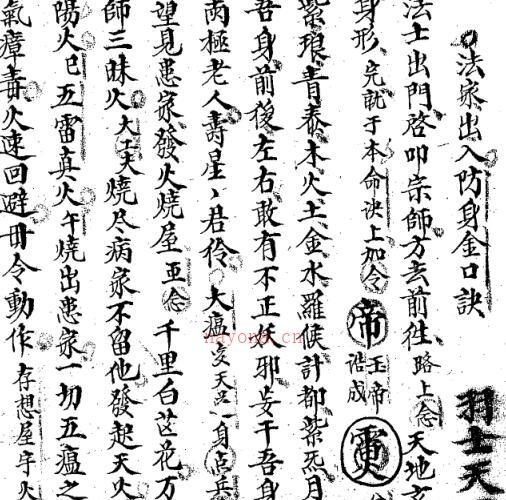 法家出入防身金口訣
羽士天
法士出門啓叩宗師方去前往路上念天地玄
身形完就于本命訣上加令帝玉帝誥成霐
紫琅青泰木火土金水羅候計都紫炁月
吾身前後左右敢有不正妖邪妄干吾身
南極老人壽星丶君伶大瘟 天 一身占兵
望見悪家發火燒屋 念千里白 花万
師三昧火 燒尽病家不留他發起天火
陽火巳五雷真火午燒出悪家一切五瘟之
氣瘴毒火速回避毋令動作存想屋宇火
nayona.cn